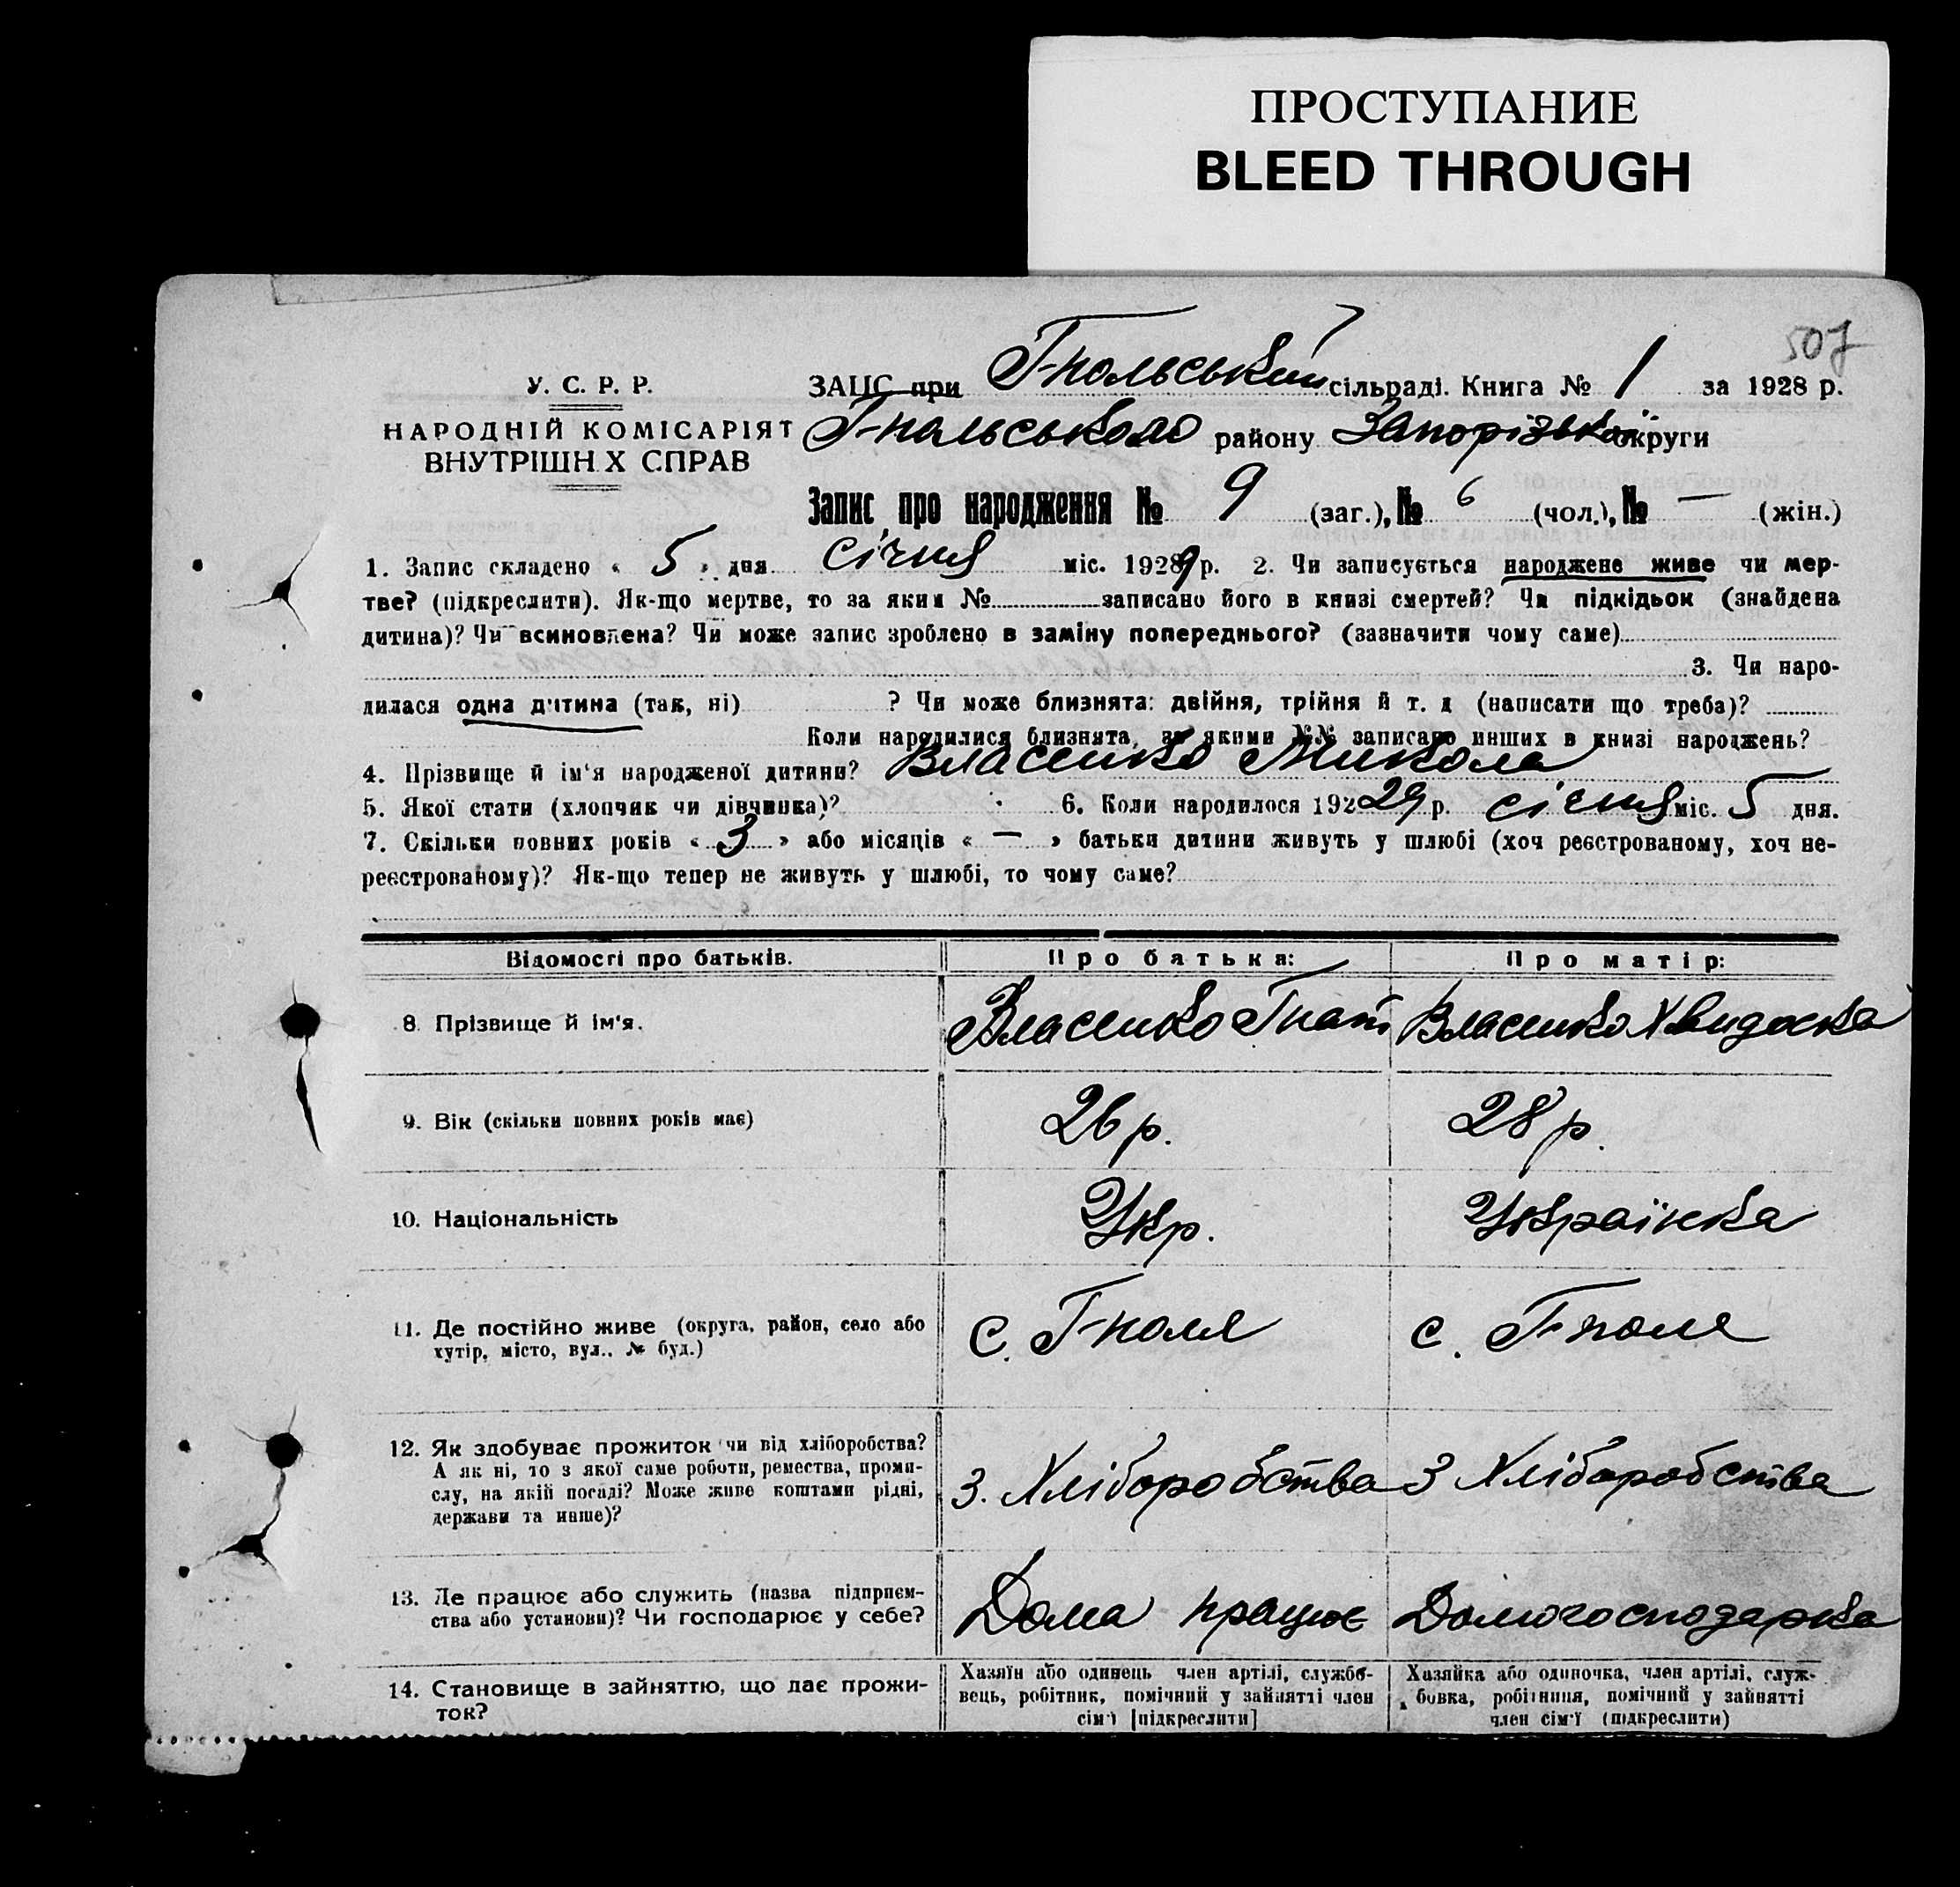 ПРОСТУПАНИЕ
BLEED THROUGH
507
У. С. Р. Р.
НАРОДНІЙ КОМІСАРІЯТ
ВНУТРІШН Х СПРАВ
ЗАЦС при Г-польський сільраді. Книга № 1 за 1928 р.
Г-польського району Запорізької округи
Запис про народження № 9 (заг.), № 6 (чол.), № — (жін.)
1. Запис складено « 5 » дня січня міс. 1929 р. 2. Чи записується народжене живе чи мер-
тве? (підкреслити). Як-що мертве, то за яким № записано його в книзі смертей? Чи підкідьок (знайдена
дитина)? Чи всиновлена? Чи може запис зроблено в заміну попереднього? (зазначити чому саме)
3. Чи наро-
дилася одна дитина (так, ні) ? Чи може близнята: двійня, трійня й т. д (написати що треба)?
Коли народилися близнята, за якими №№ записано инших в книзі народжень?
4. Прізвище й ім'я народженої дитини? Власенко Микола
5. Якої стати (хлопчик чи дівчинка)? 6. Коли народилося 192 29 р. січня міс. 5 дня.
7. Скільки повних років « 3 » або місяців « — » батьки дитини живуть у шлюбі (хоч реєстрованому, хоч не-
реєстрованому)? Як-що тепер не живуть у шлюбі, то чому саме?
Відомості про батьків. Про батька: Про матір:
8. Прізвище й ім'я. Власенко Гнат Власенко Хвидоска
9. Вік (скільки повних років має) 26 р. 28 р.
10. Національність Укр. Українка
11. Де постійно живе (округа, район, село або
хутір, місто, вул.. № буд.) с. Г-поля с. Г-поле
12. Як здобуває прожиток чи від хліборобства?
А як ні, то з якої саме роботи, ремества, проми-
слу, на якій посаді? Може живе коштами рідні,
держави та инше)? З. Хліборобства З Хліборобства
13. Де працює або служить (назва підприєм-
ства або установи)? Чи господарює у себе? Дома працює Домогосподарка
14. Становище в зайняттю, що дає прожи-
ток?
Хазяїн або одинець член артілі, службо-
вець, робітник, помічний у зайнятті член
сім'ї [підкреслити]
Хазяйка або одиночка, член артілі, служ-
бовка, робітниця, помічний у зайнятті
член сім'ї (підкреслити)